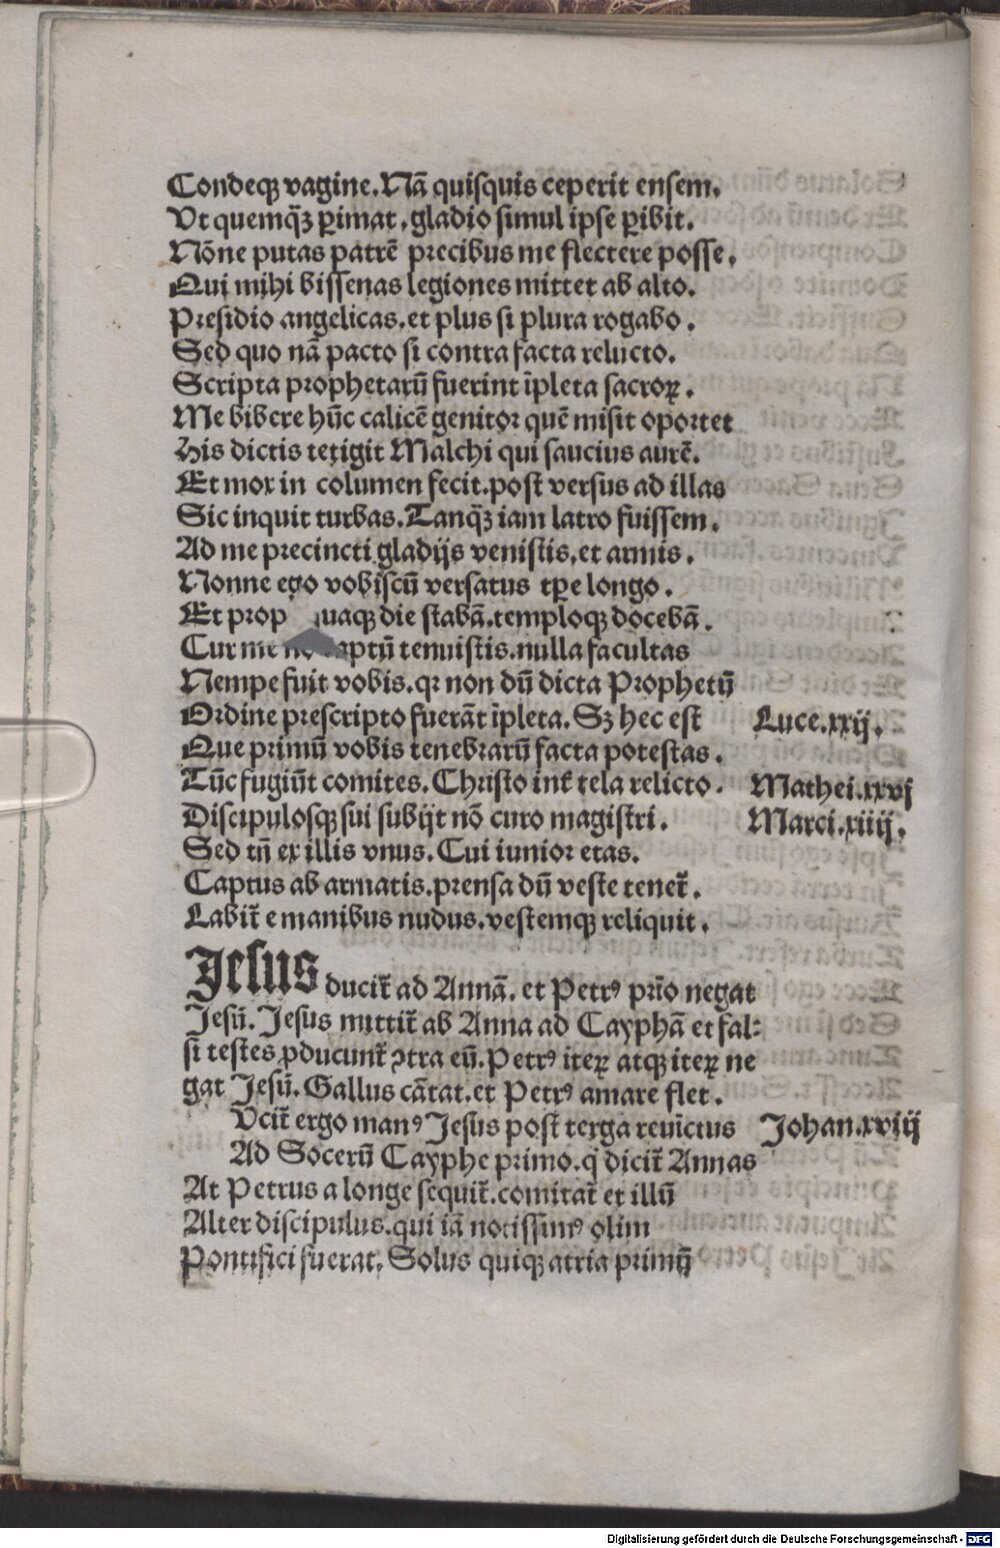 Condeqꝫ vagine. Nā quisquis ceperit ensem.
Vt quemq̄ꝫ ꝑimat, gladio simul ipse ꝑibit.
Nōne putas patrē precibus me flectere posse,
Qui mihi bissenas legiones mittet ab alto.
Presidio angelicas. et plus si plura rogabo.
Sed quo nā pacto si contra facta relucto.
Scripta prophetarū fuerint īpleta sacroꝝ.
Me bibere hūc calicē genitor quē misit oportet
His dictis tetigit Malchi qui saucius aurē.
Et mox in columen fecit. post versus ad illas
Sic inquit turbas. Tanq̄ꝫ iam latro fuissem.
Ad me precincti gladijs venistis, et armis.
Nonne ego vobiscū versatus tꝑe longo.
Et prop uaqꝫ die stabā. temploqꝫ docebā.
Cur me nō captū tenuistis. nulla facultas
Nempe fuit vobis. qꝛ non dū dicta Prophetū
Ordine prescripto fuerāt īpleta. Sꝫ hec est
Luce. xxij.
Que primū vobis tenebrarū facta potestas.
Tūc fugiūt comites. Christo int̄ tela relicto.
Mathei. xxvj
Discipulosqꝫ sui subijt nō curo magistri.
Marci. xiiij.
Sed tn̄ ex illis vnus. Cui iunior etas.
Captus ab armatis. prensa dū veste tenet̄.
Labit̄ e manibus nudus. vestemqꝫ reliquit.
Jesus ducit̄ ad Annā. et Petrꝰ prīo negat
Jesū. Jesus mittit̄ ab Anna ad Cayphā et fal⸗
si testes ꝓducunt̄ ꝯtra eū. Petrꝰ iteꝝ atqꝫ iteꝝ ne
gat Jesū. Gallus cātat. et Petrꝰ amare flet.
Vcit̄ ergo manꝰ Jesus post terga reuictus
Johan. xviij
Ad Socerū Cayphe primo. q̇ dicit̄ Annas
At Petrus a longe sequit̄. comitat̄ et illū
Alter discipulus. qui iā notissimꝰ olim
Pontifici fuerat. Solus quiqꝫ atria primū